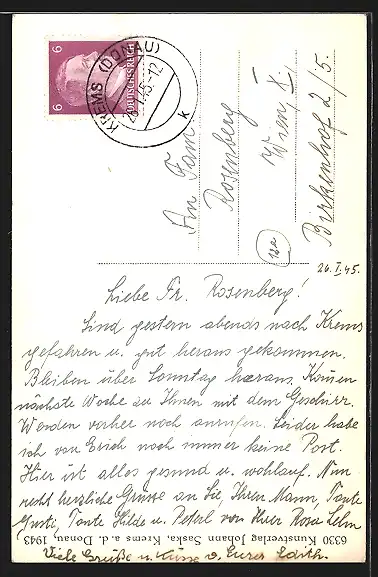 6
6
DEUTSCHES REICH
KREMS (DONAU)
26.1.45-12
k
An Fam
Rosenberg
Wien X
Birkenhof 2/5.
26.I.45.
Liebe Fr. Rosenberg!
Sind gestern abends nach Krems
gefahren u. gut heraus gekommen.
Bleiben über Sonntag heraus. Können
nächste Woche zu Ihnen mit dem Geschirr.
Werden vorher noch anrufen. Leider habe
ich von Erich noch immer keine Post.
Hier ist alles gesund u. wohlauf. Nun
recht herzliche Grüsse an Sie, Ihren Mann, Tante
Gusti, Tante Hilde u. Peterl von Ihrer Rosa
Viele Grüße u. Küsse v. Eurer Edith.
6330 Kunstverlag Johann Saska, Krems a. d. Donau, 1943